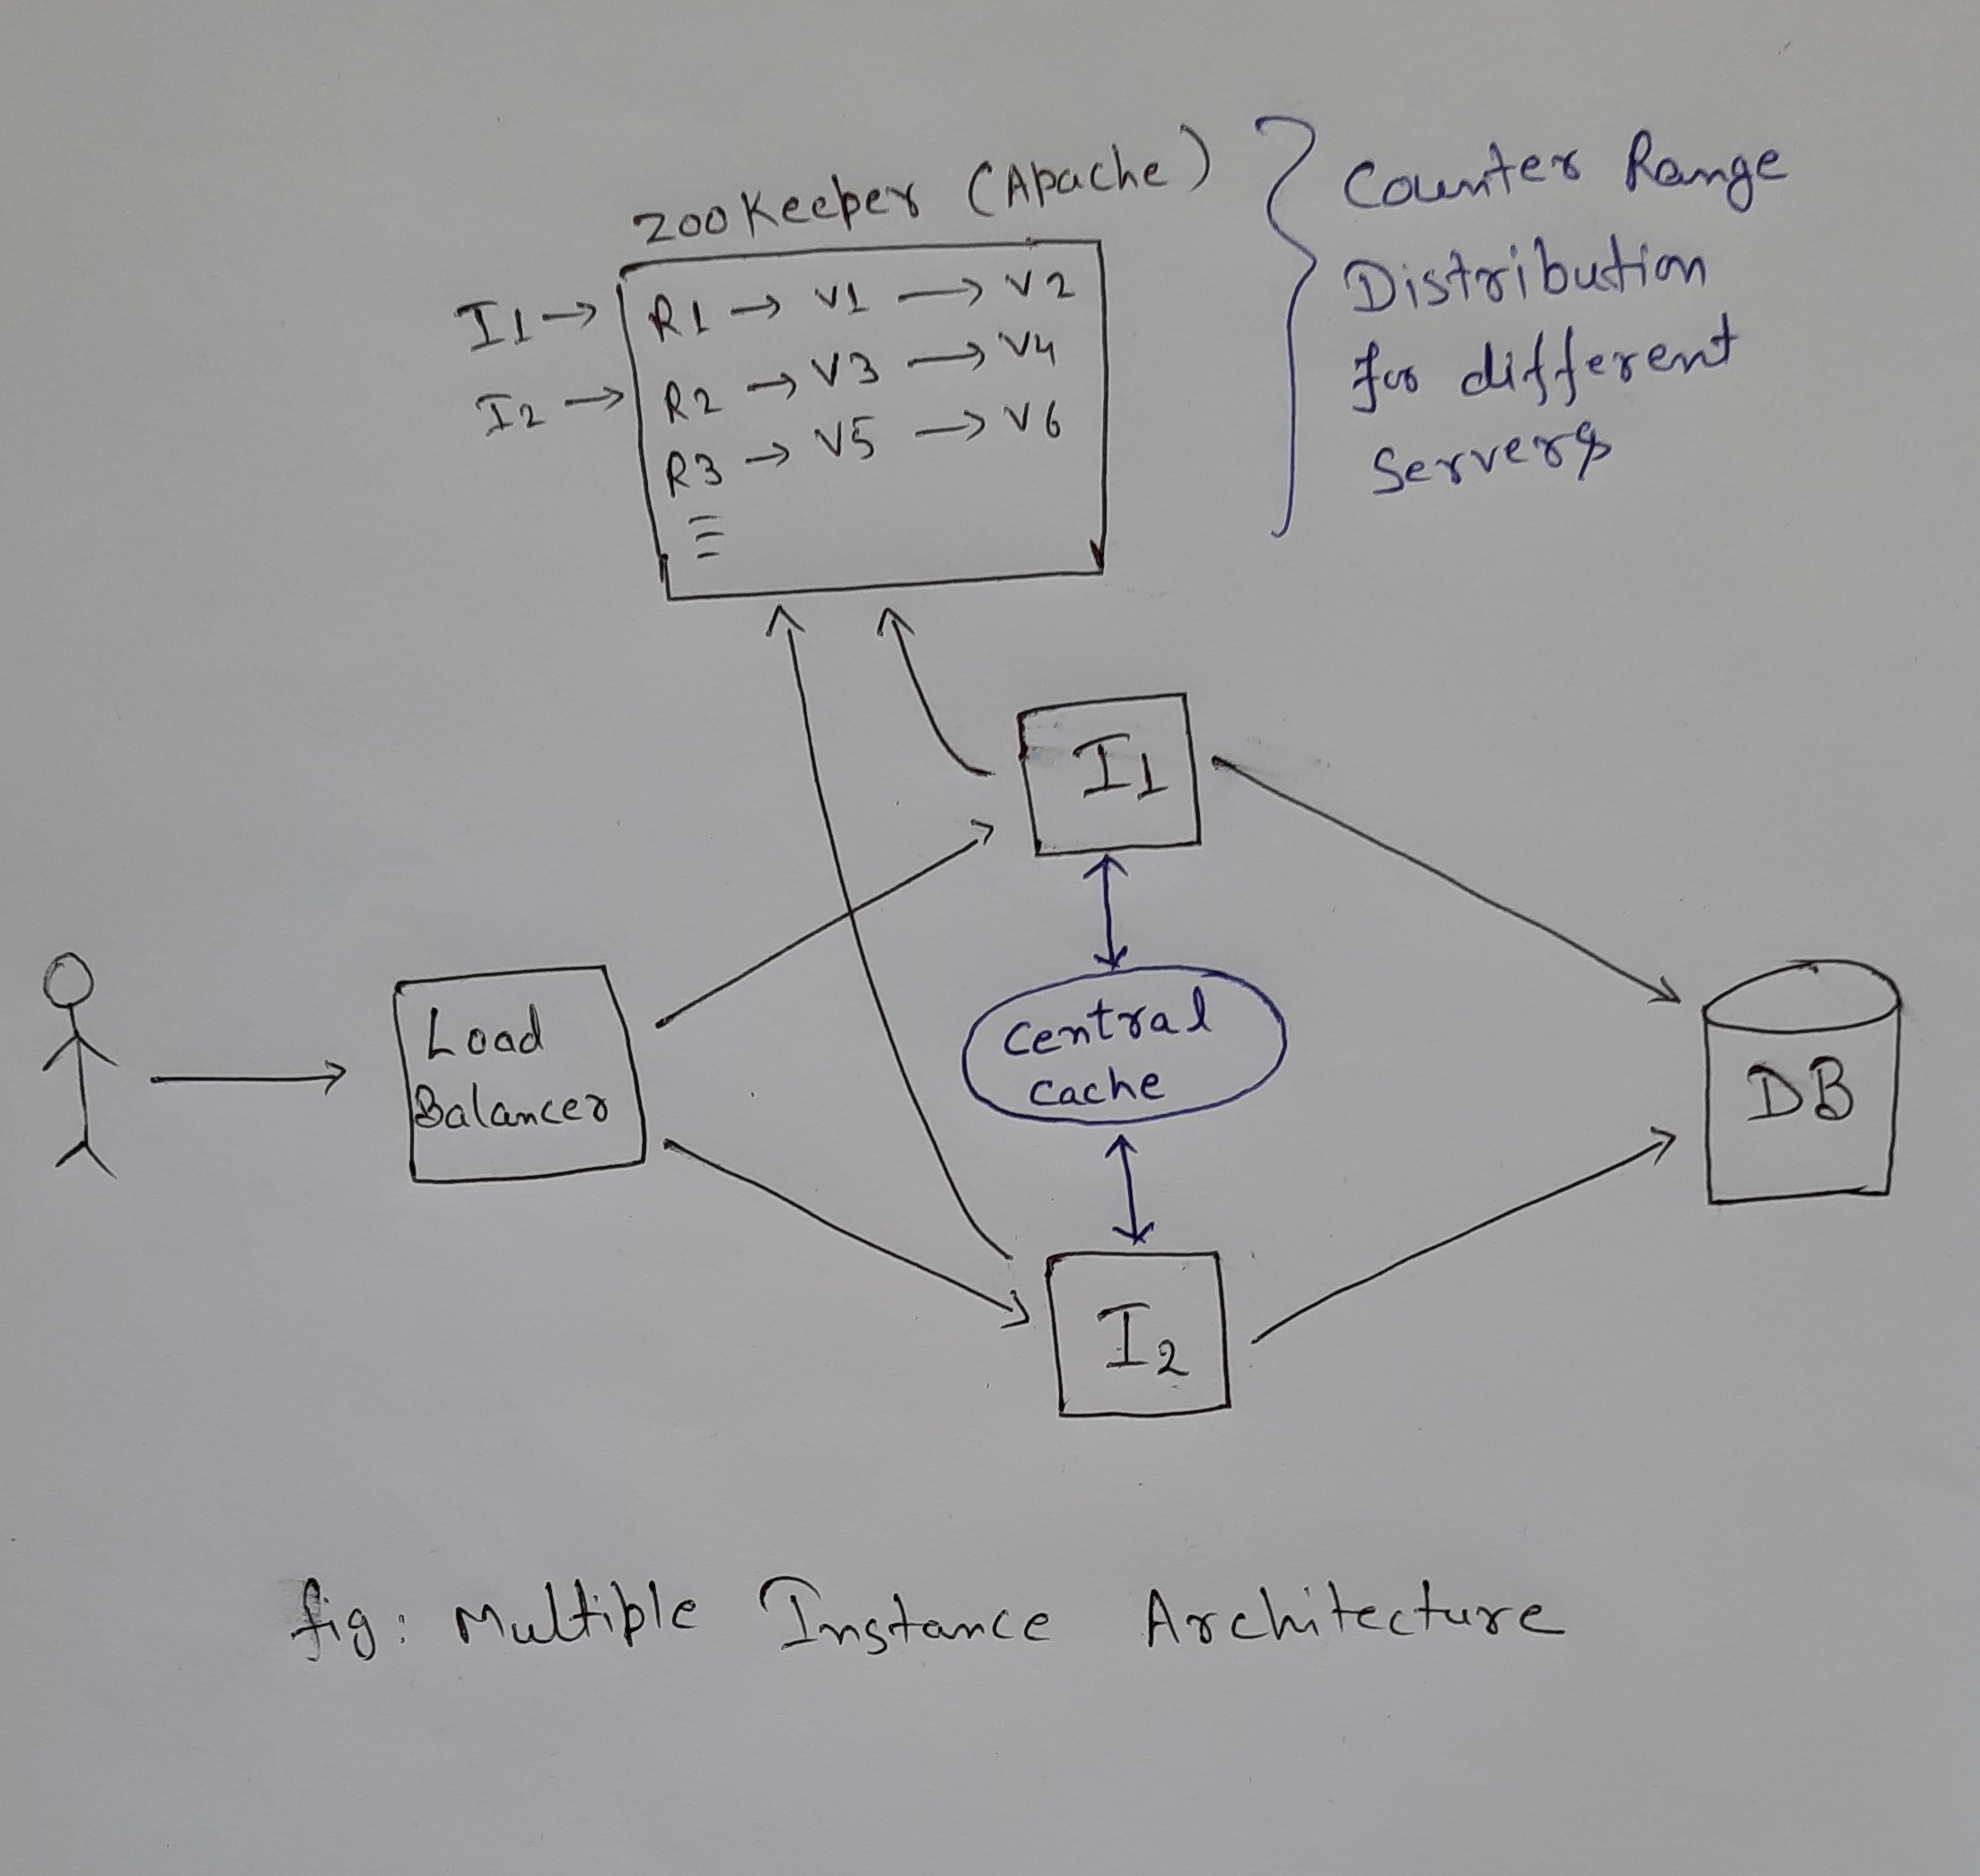 ZooKeeper (Apache)
I1 → R1 → V1 → V2
I2 → R2 → V3 → V4
R3 → V5 → V6
Counter Range
Distribution
for different
Servers
I1
Load
Balancer
Central
Cache
DB
I2
fig: Multiple Instance Architecture